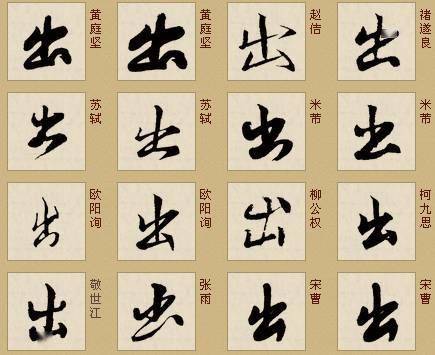 出 黄庭坚 出 黄庭坚 出 赵佶 出 褚遂良
出 苏轼 出 苏轼 出 米芾 出 米芾
出 欧阳询 出 欧阳询 出 柳公权 出 柯九思
出 敬世江 出 张雨 出 宋曹 出 宋曹